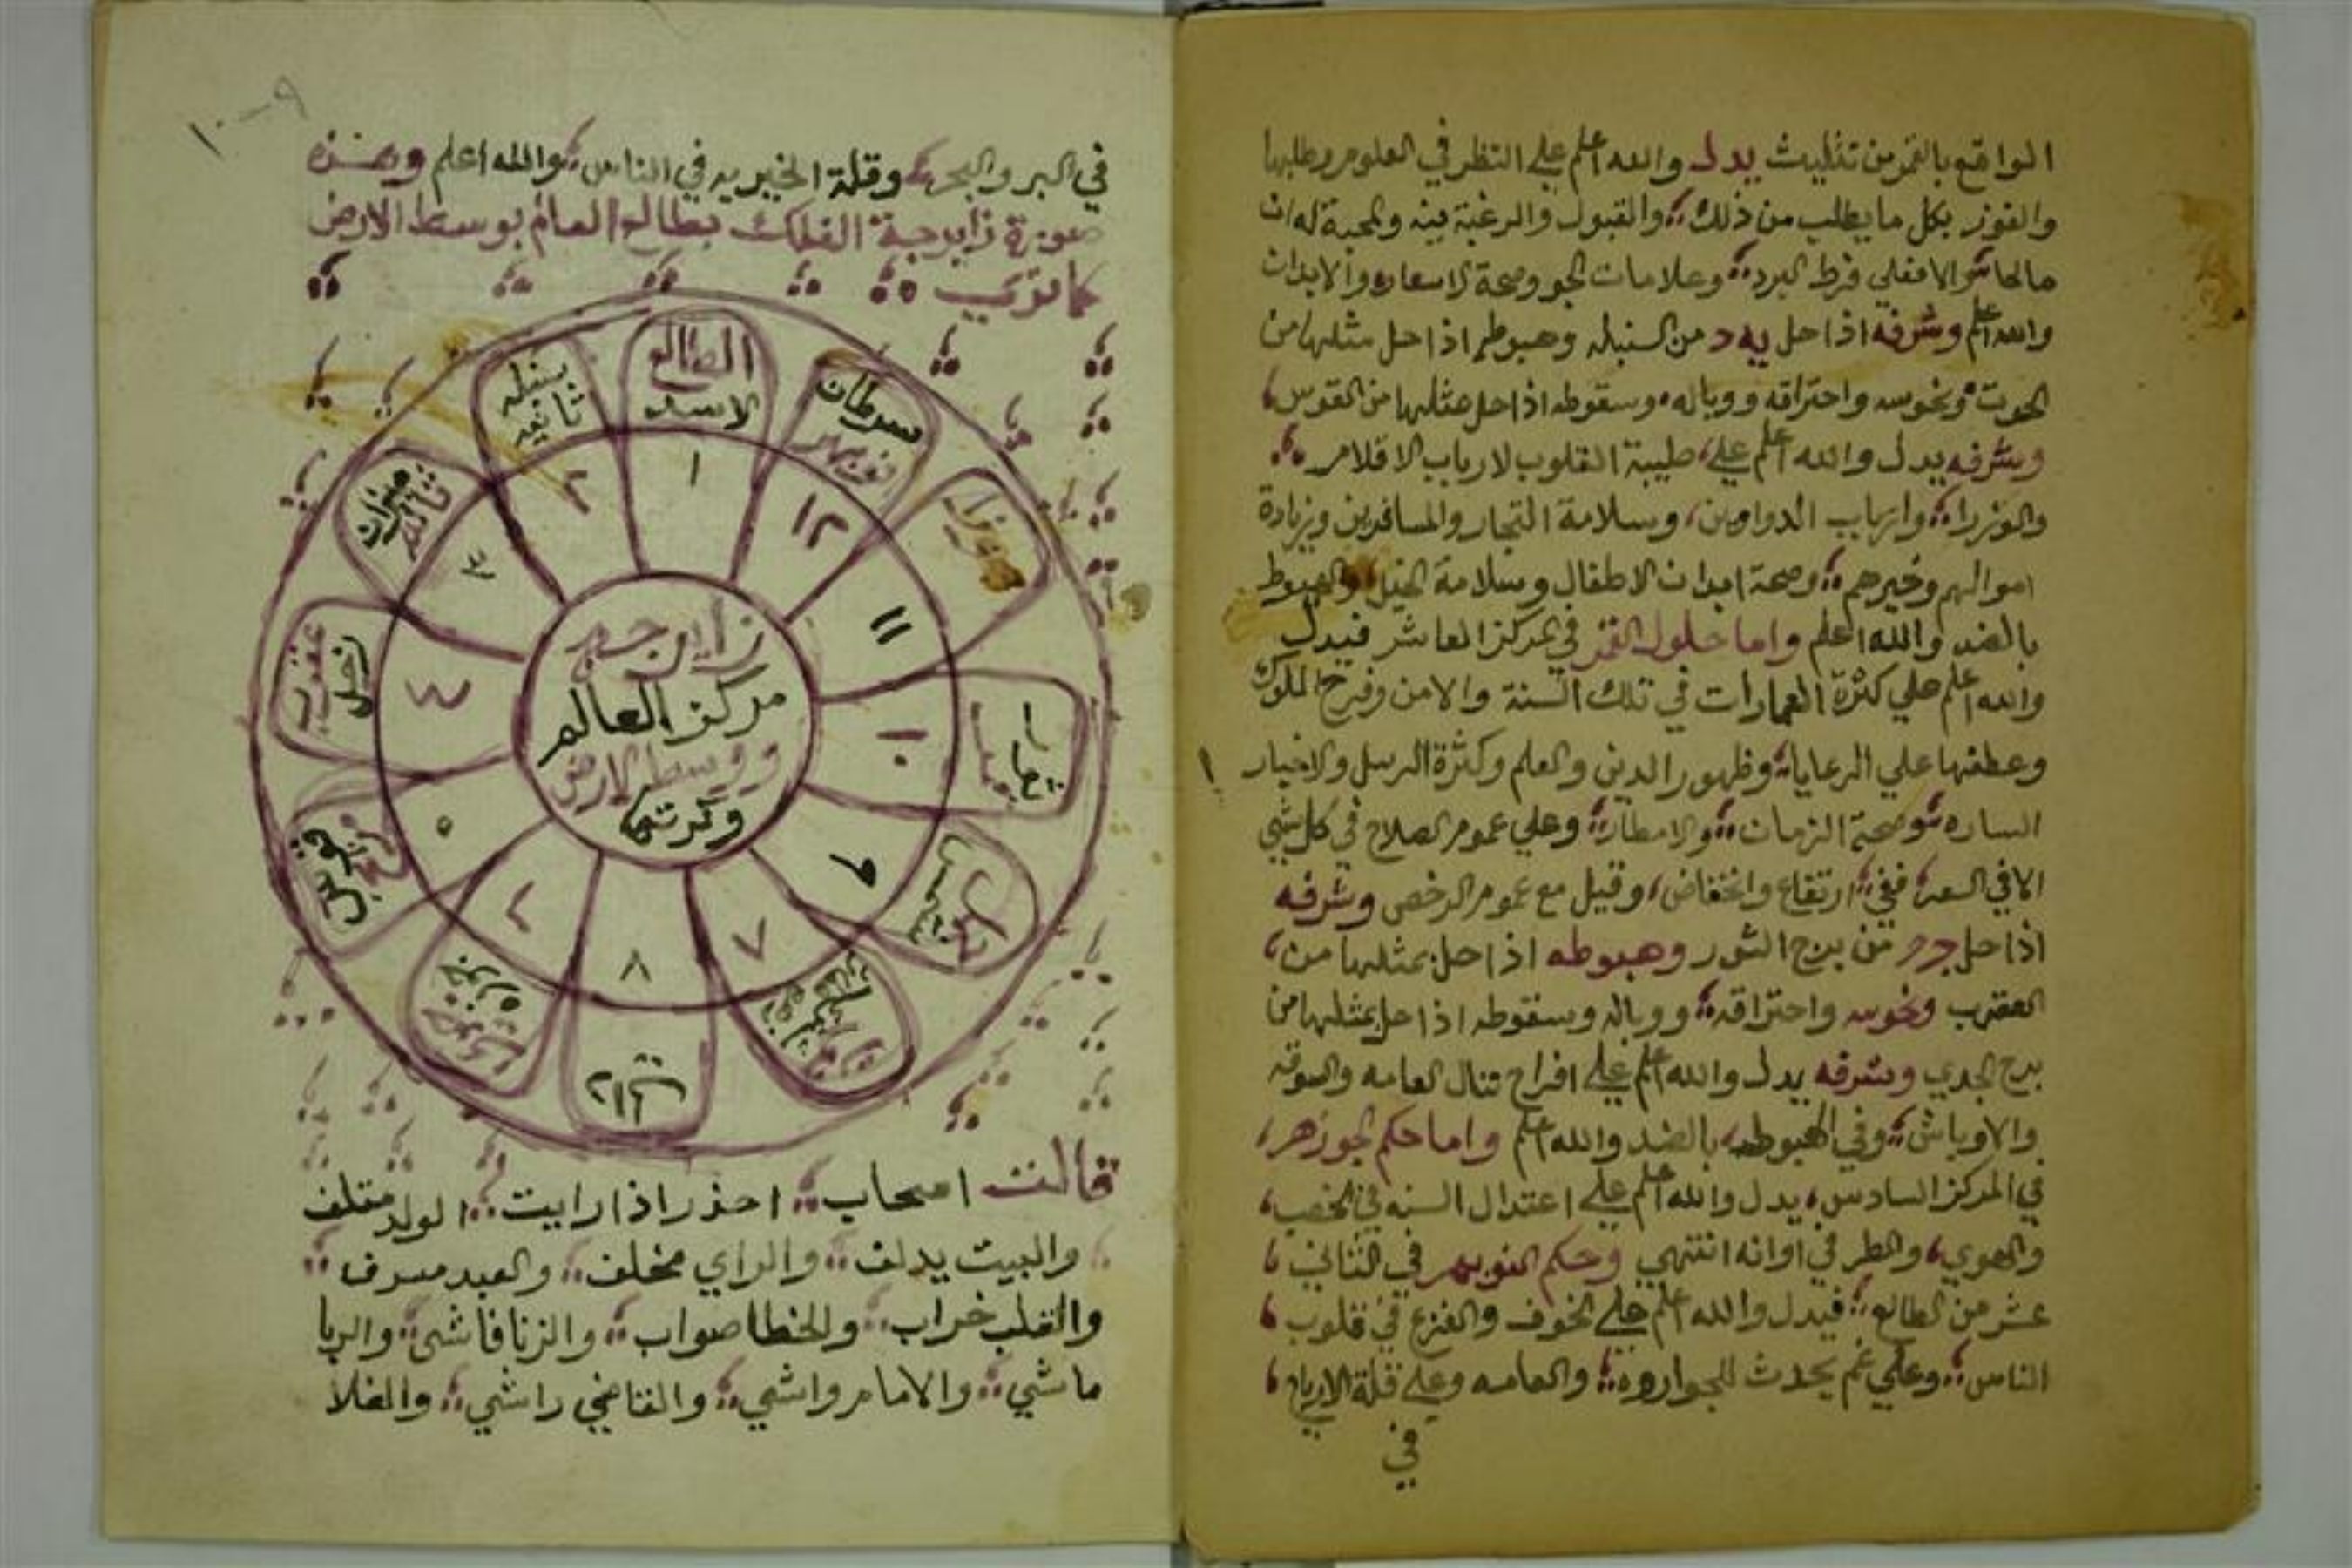 الواقع بالقمر من تثليث يدل والله اعلم علي النظر في العلوم وطلبها
والفوز بكل ما يطلب من ذلك والقبول والرغبة فيه والمحبة له ان
فرط البرد وعلامات الجو وصحة الاسعار والابدان
والله اعلم وشرفه اذا حل يه د من السنبله وهبوطه اذا حل مثلها من
الحوت ونحوسه واحتراقه ووباله وسقوطه اذا حل مثلها من القوس
وشرفه يدل والله اعلم علي طيبة القلوب لارباب الاقلام
والوزراء وارباب الدواوين وسلامة التجار والمسافرين وزيادة
اموالهم وخيرهم وصحة ابدان الاطفال وسلامة الخيل والهبوط
بالضد والله اعلم واما حلول القمر في مركز العاشر فيدل
والله اعلم علي كثرة العمارات في تلك السنة والامن وفرح الملوك
وعطفها علي الرعايا وظهور الدين والعلم وكثرة الرسل والاخبار
الساره وصحة الزمان والامطار وعلي عموم الصلاح في كل شي
الا في السعر ففي ارتفاع وانخفاض وقيل مع عموم الرخص وشرفه
اذا حل من برج الثور وهبوطه اذا حل بمثلها من
العقرب ونحوسه واحتراقه ووباله وسقوطه اذا حل بمثلها من
برج الجدي وشرفه يدل والله اعلم علي افراح العامه والسوقه
والاوباش وفي الهبوط بالضد والله اعلم واما حكم الجوزهر
في المركز السادس يدل والله اعلم علي اعتدال السنه في الخصب
والهوي والمطر في اوانه انتهي وحكم النوبهر في الثاني
عشر من الطالع فيدل والله اعلم علي الخوف والفزع في قلوب
الناس وعلي غم يحدث للجواروه والعامه وعلي قلة الارباح
في
١٠-٩
في البر والبحر وقلة الخيريه في الناس والله اعلم وهذه
صورة زايرجة الفلك بطالع العام بوسط الارض
كما تري
الطالع
الاسد
١
سنبله
ثانيه
٢
ميزان
ثالثه
٣
عقرب
زحل
٤
قوس
مريخ
٥
٦
٧
٨
٩
١٠
١١
سرطان
نوبهر
١٢
زايرجه
مركز العالم
ووسط الارض
وكرتها
قالت اصحاب احذر اذا رايت الولد متلف
والبيت يدلف والراي مخلف والعبد مسرف
والقلب خراب والخطا صواب والزنا فاشي والربا
ماشي والامام واشي والقاضي راشي والغلا